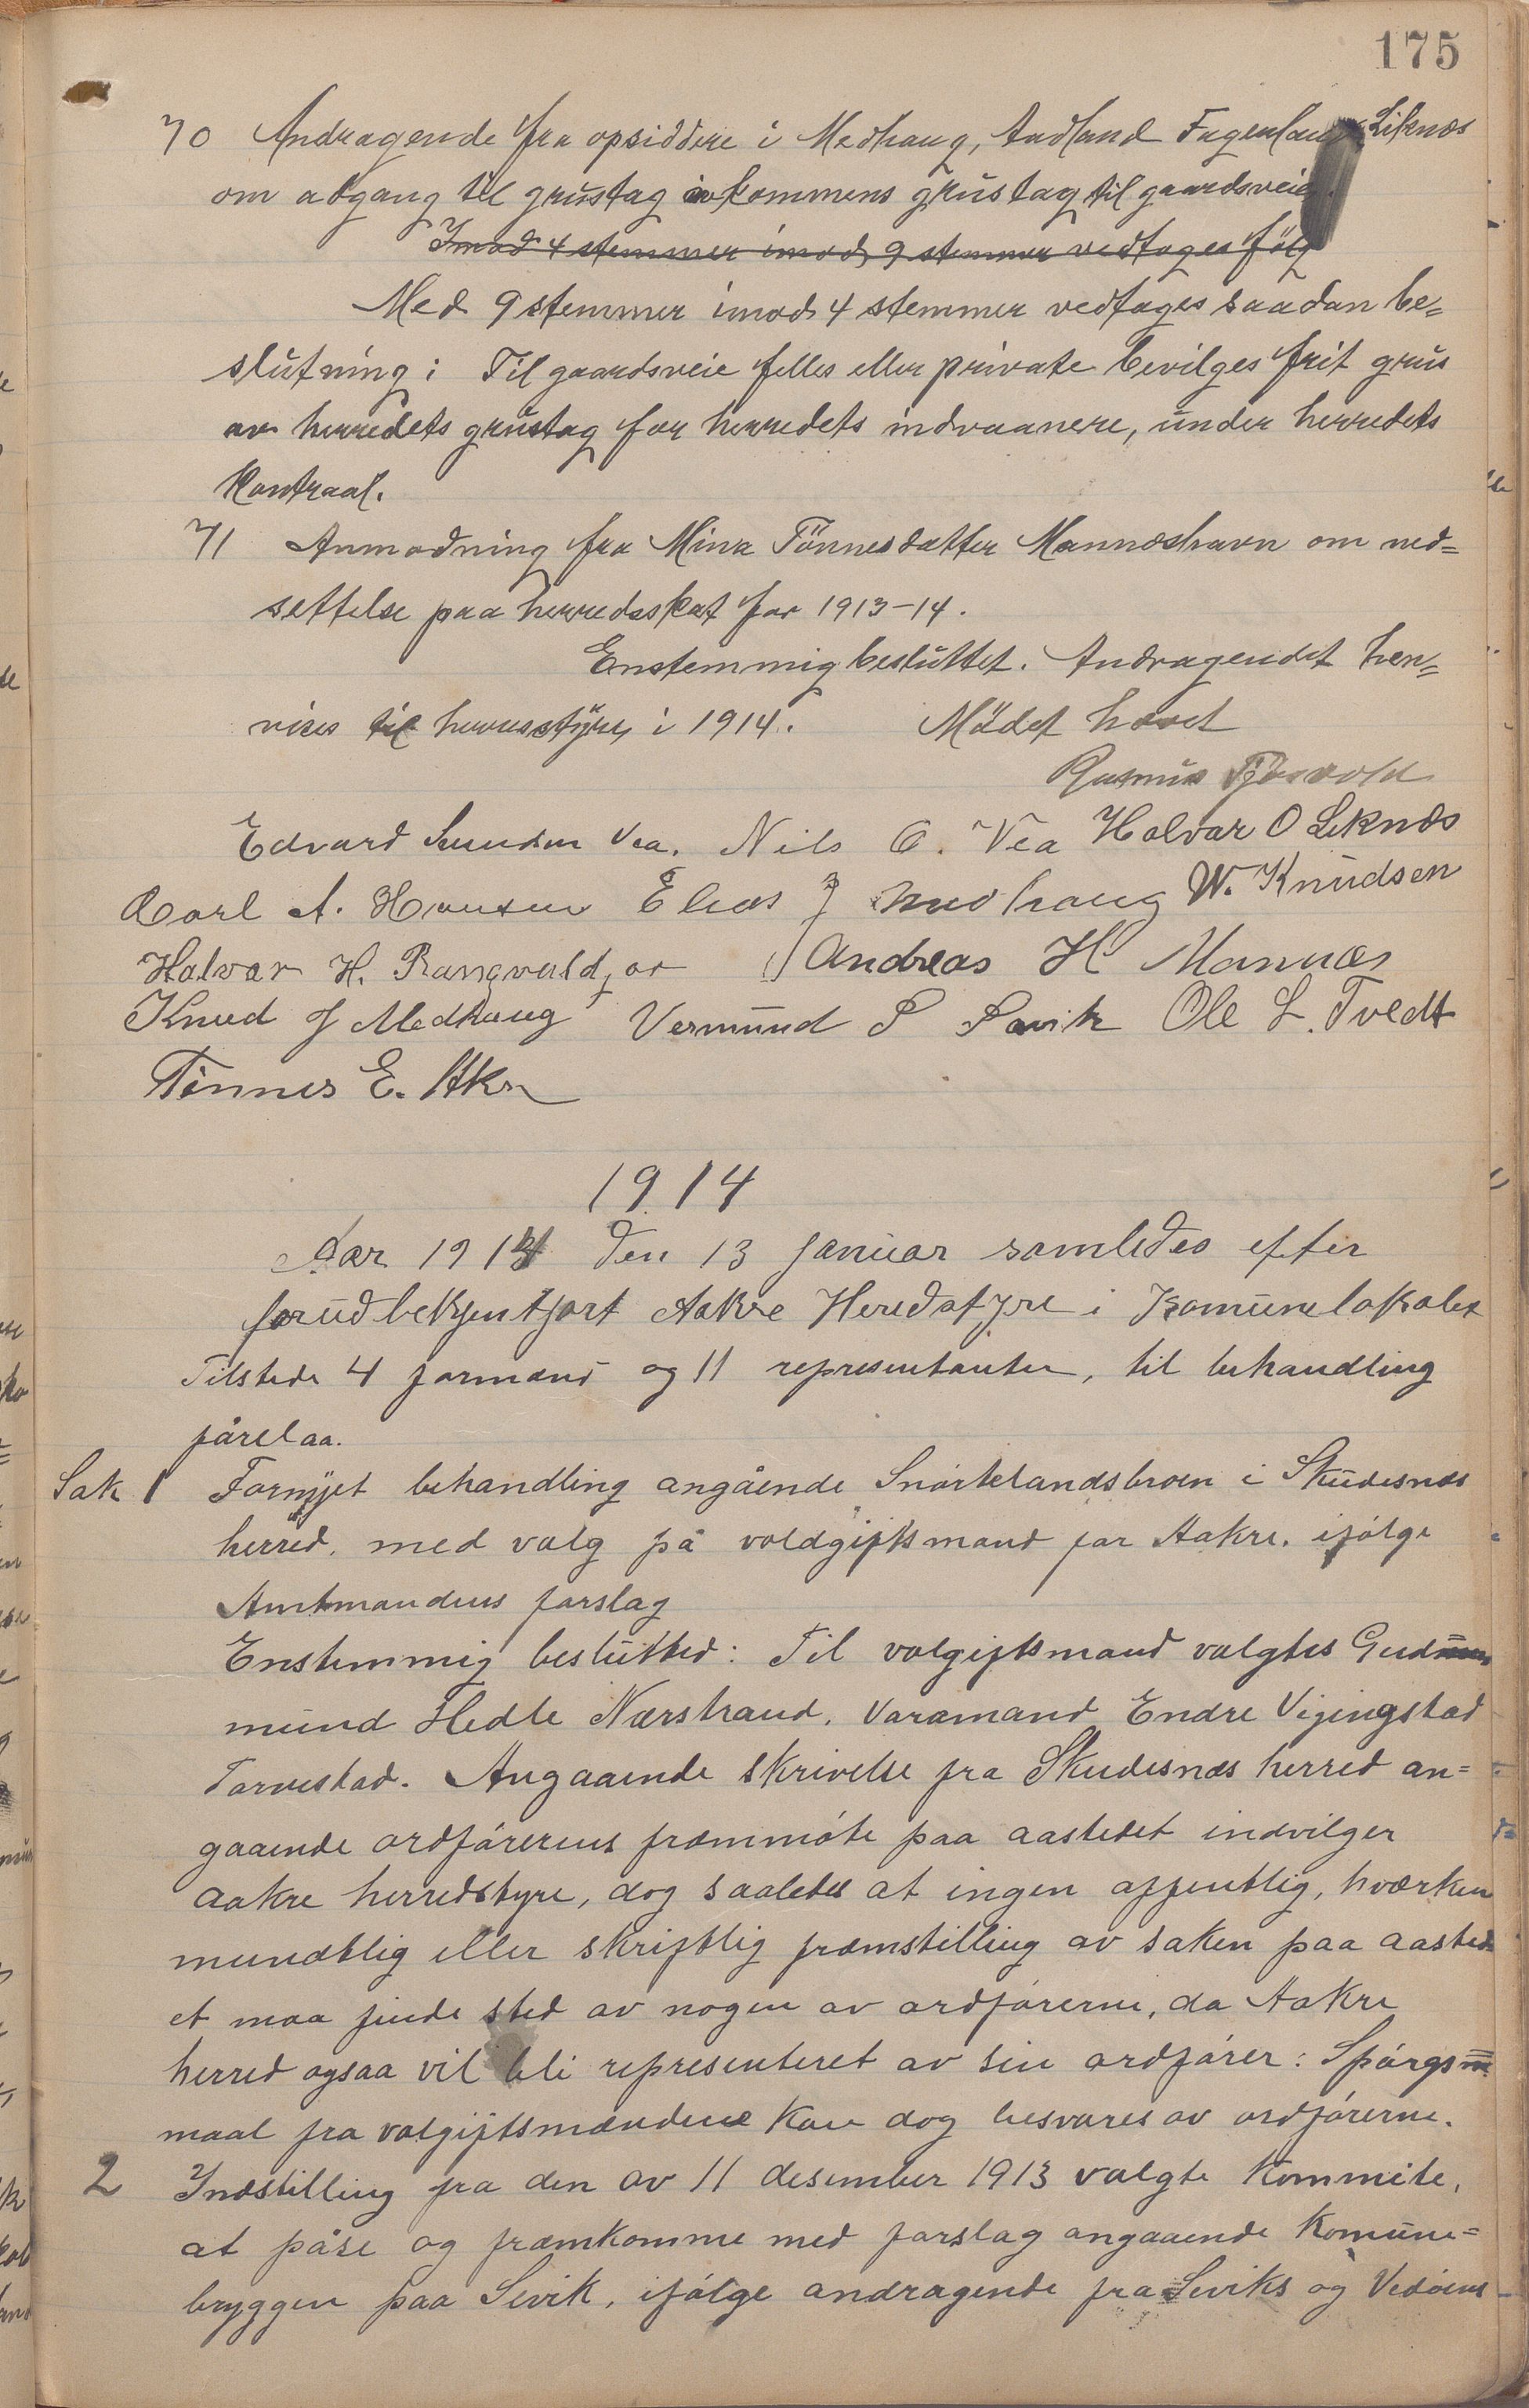 175
70 Andragende fra opsiddere i Medhaug, Aadland Fagenland Liknæs
om adgang til grustag av kommens grustag til gaardsveie.
Imod 4 stemmer imod 9 stemmer vedtages følg
Med 9 stemmer imod 4 stemmer vedtages saadan be-
slutning: Til gaardsveie felles eller private bevilges frit grus
av herredets grustag for herredets indvaanere, under herredets
Kontraal.
71 Anmodning fra Mina Tönnesdatter Mannæshavn om ned-
settelse paa herredsskat for 1913-14.
Enstemmig besluttet. Andragendet hen-
vises til herresstyre, i 1914. Mödet hævet
Rasmus
Edvard Vea. Nils O. Vea Halvar O Liknæs
Carl A. Hansen Elias J Medhaug W. Knudsen
Halvar H. Andreas H Mannæs
Knud J Medhaug Vermund S Sævik Ole L. Tvedt
Tönnes E. Akre
1914
Aar 1914 den 13 januar samledes efter
forudbekjentjort Aakre Heredstyre i Komunelokalet
Tilstede 4 formænd og 11 representanter, til behandling
fórelaa.
Sak 1 Fornyjet behandling angående Snörtelandsbroen i Skudesnæs
herred, med valg på voldgiftsmand for Aakre, ifólge
Amtmandens forslag
Enstemmig beslutted: Til volgiftsmand valgtes Gud
mund Hedle Nærstrand, Varamand Endre Vijingstad
Torvestad. Angaaende skrivelse fra Skudesnæs herred an=
gaaende ordfórerens fræmmóte paa aastedet indvilger
aakre herredstyre, dog saaledes at ingen offentlig, hværken
mundtlig eller skriftlig fræmstilling av saken paa aasted
et maa finde sted av nogen av ordfórerne, da Aakre
herred ogsaa vil bli representeret av sin ordfórer: Spórgsm
maal fra volgiftsmændene kan dog besvares av ordfórerne.
2 Indstilling fra den av 11 desember 1913 valgte kommite,
at påse og fræmkomme med forslag angaaende Komune=
bryggen paa Sevik, ifólge andragende fra Seviks og Vedóens